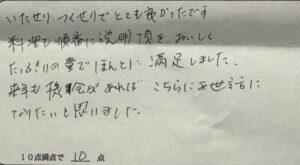 いたせり、つくせりでとても良かったです
料理も順番に説明頂き、おいしく
たっぷりの量でほんとに満足しました。
来年も機会があれば こちらにお世話に
なりたいと思いました。
10点満点で 10 点